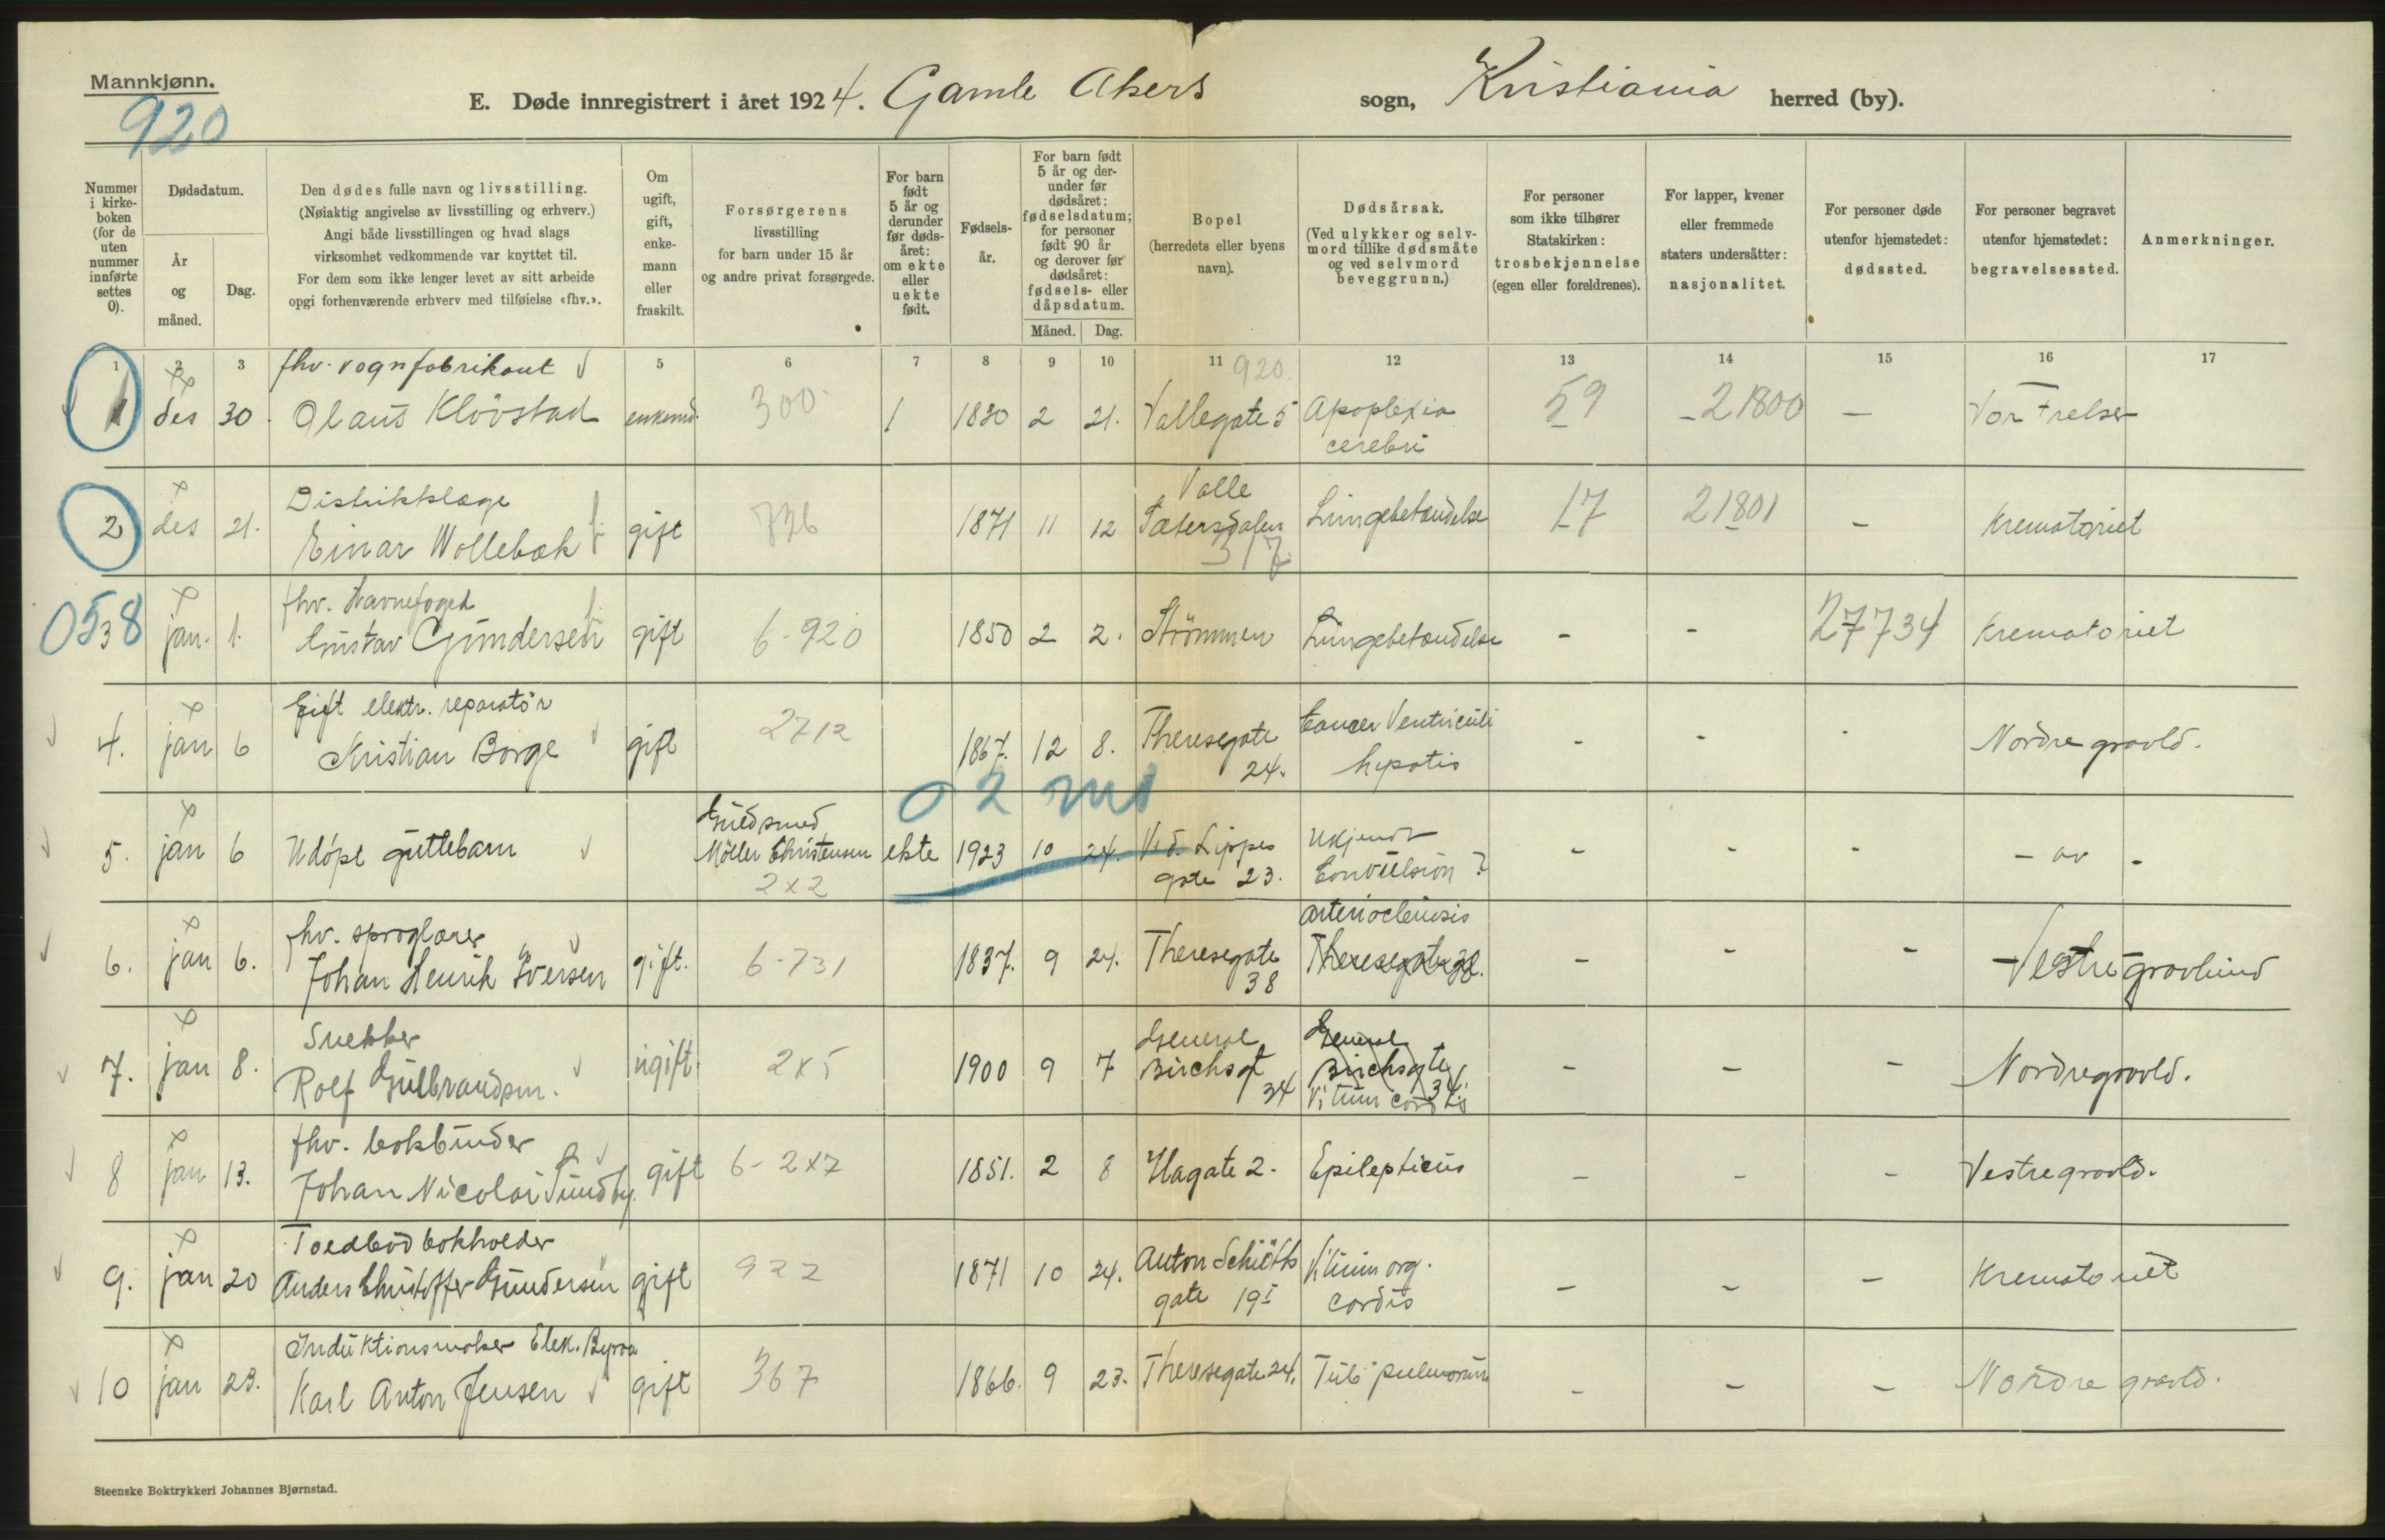 Mannkjønn.
920
E. Døde innregistrert i året 1924. Gamle Akers sogn, Kristiania herred (by).
Nummer i kirke-boken (for de uten nummer innførte settes 0).
Dødsdatum.
År og måned.
Dag.
Den dødes fulle navn og livsstilling.
(Nøiaktig angivelse av livsstilling og erhverv.)
Angi både livsstillingen og hvad slags
virksomhet vedkommende var knyttet til.
For dem som ikke lenger levet av sitt arbeide
opgi forhenværende erhverv med tilføielse «fhv.».
Om ugift, gift, enke-mann eller fraskilt.
Forsørgerens livsstilling for barn under 15 år og andre privat forsørgede.
For barn født 5 år og derunder før døds-året: om ekte eller uekte født.
Fødsels-år.
For barn født 5 år og der-under før dødsåret: fødselsdatum; for personer født 90 år og derover før dødsåret: fødsels- eller dåpsdatum.
Måned. Dag.
Bopel (herredets eller byens navn).
Dødsårsak. (Ved ulykker og selv-mord tillike dødsmåte og ved selvmord beveggrunn.)
For personer som ikke tilhører Statskirken: trosbekjennelse (egen eller foreldrenes).
For lapper, kvener eller fremmede staters undersåtter: nasjonalitet.
For personer døde utenfor hjemstedet: dødssted.
For personer begravet utenfor hjemstedet: begravelsessted.
Anmerkninger.
1 2 3 5 6 7 8 9 10 11 12 13 14 15 16 17
920.
fhv. vognfabrikant
1 des 30. Olaus Klövstad enkemd. 300 1 1830 2 21. Vallegate 5 Apoplexia 59 - 21800 - Vor Frelser
cerebri
Distriktslæge Valle
2 des 21. Einar Wollebæk gift 726 1871 11 12 Sætersdalen Lungebetændelse 17 21801 - Krematoriet
317
fhv. Havnefoged
058
3 jan. 1. Gustav Gundersen gift 6-920 1850 2 2. Strömmen Lungebetændelse - - 27734 Krematoriet
Gift elektr. reparatör
4. jan 6 Kristian Borge gift 2712 1867. 12 8. Theresegate Cancer Ventriculi - - - Nordre gravld.
24. hepatis
02
Guldsmed
5. jan 6 Udöpt guttebarn Möller Christensen ekte 1923 10 24. Vid. Lippes Ukjendt - - - - av -
2x2 gate 23. Convulsion ?
fhv. sproglærer arteriosclerosis
6. jan 6. Johan Henrik Iversen gift. 6-731 1837. 9 24. Theresegate Theresegate 38. - - - Vestre gravlund
38
Snekker General General
7. jan 8. Rolf Gulbrandsen. ugift. 2x5 1900 9 7 Birchsgt Birchsgate - - - Nordregravld.
34 34.
Vitium cordis
fhv. bokbinder
8 jan 13. Johan Nicolai Sundby gift 6-2x7 1851. 2 8 Ullagate 2. Epilepticus - - - Vestregravld.
Toldbod bokholder
9. jan 20 Anders Christoffer Gundersen gift 922 1871 10 24. Anton Schiötts Vitium org. - - - Krematoriet
gate 19 I cordis
Induktionsmaker Elek. Byraa
10 jan 23. Karl Anton Jensen gift 367 1866. 9 23. Theresegate 24. Tub. pulmorum - - - Nordre gravld.
Steenske Boktrykkeri Johannes Bjørnstad.